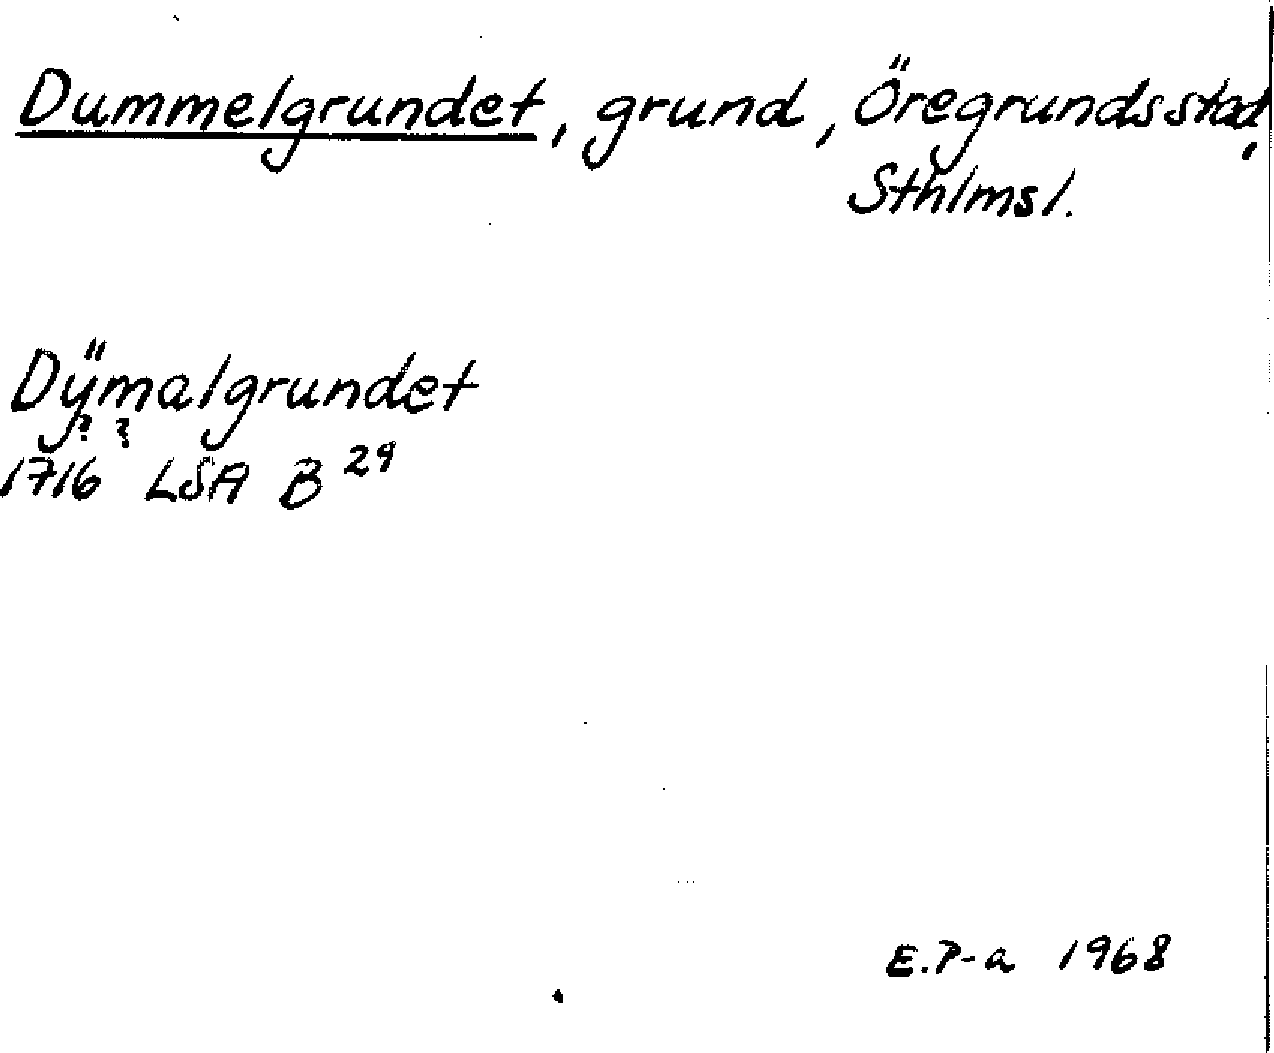 Dummelgrundet, grund, Öregrundsstad,
Sthlmsl.
Dÿmalgrundet
? ?
1716 LSA B 29
E.P-a 1968